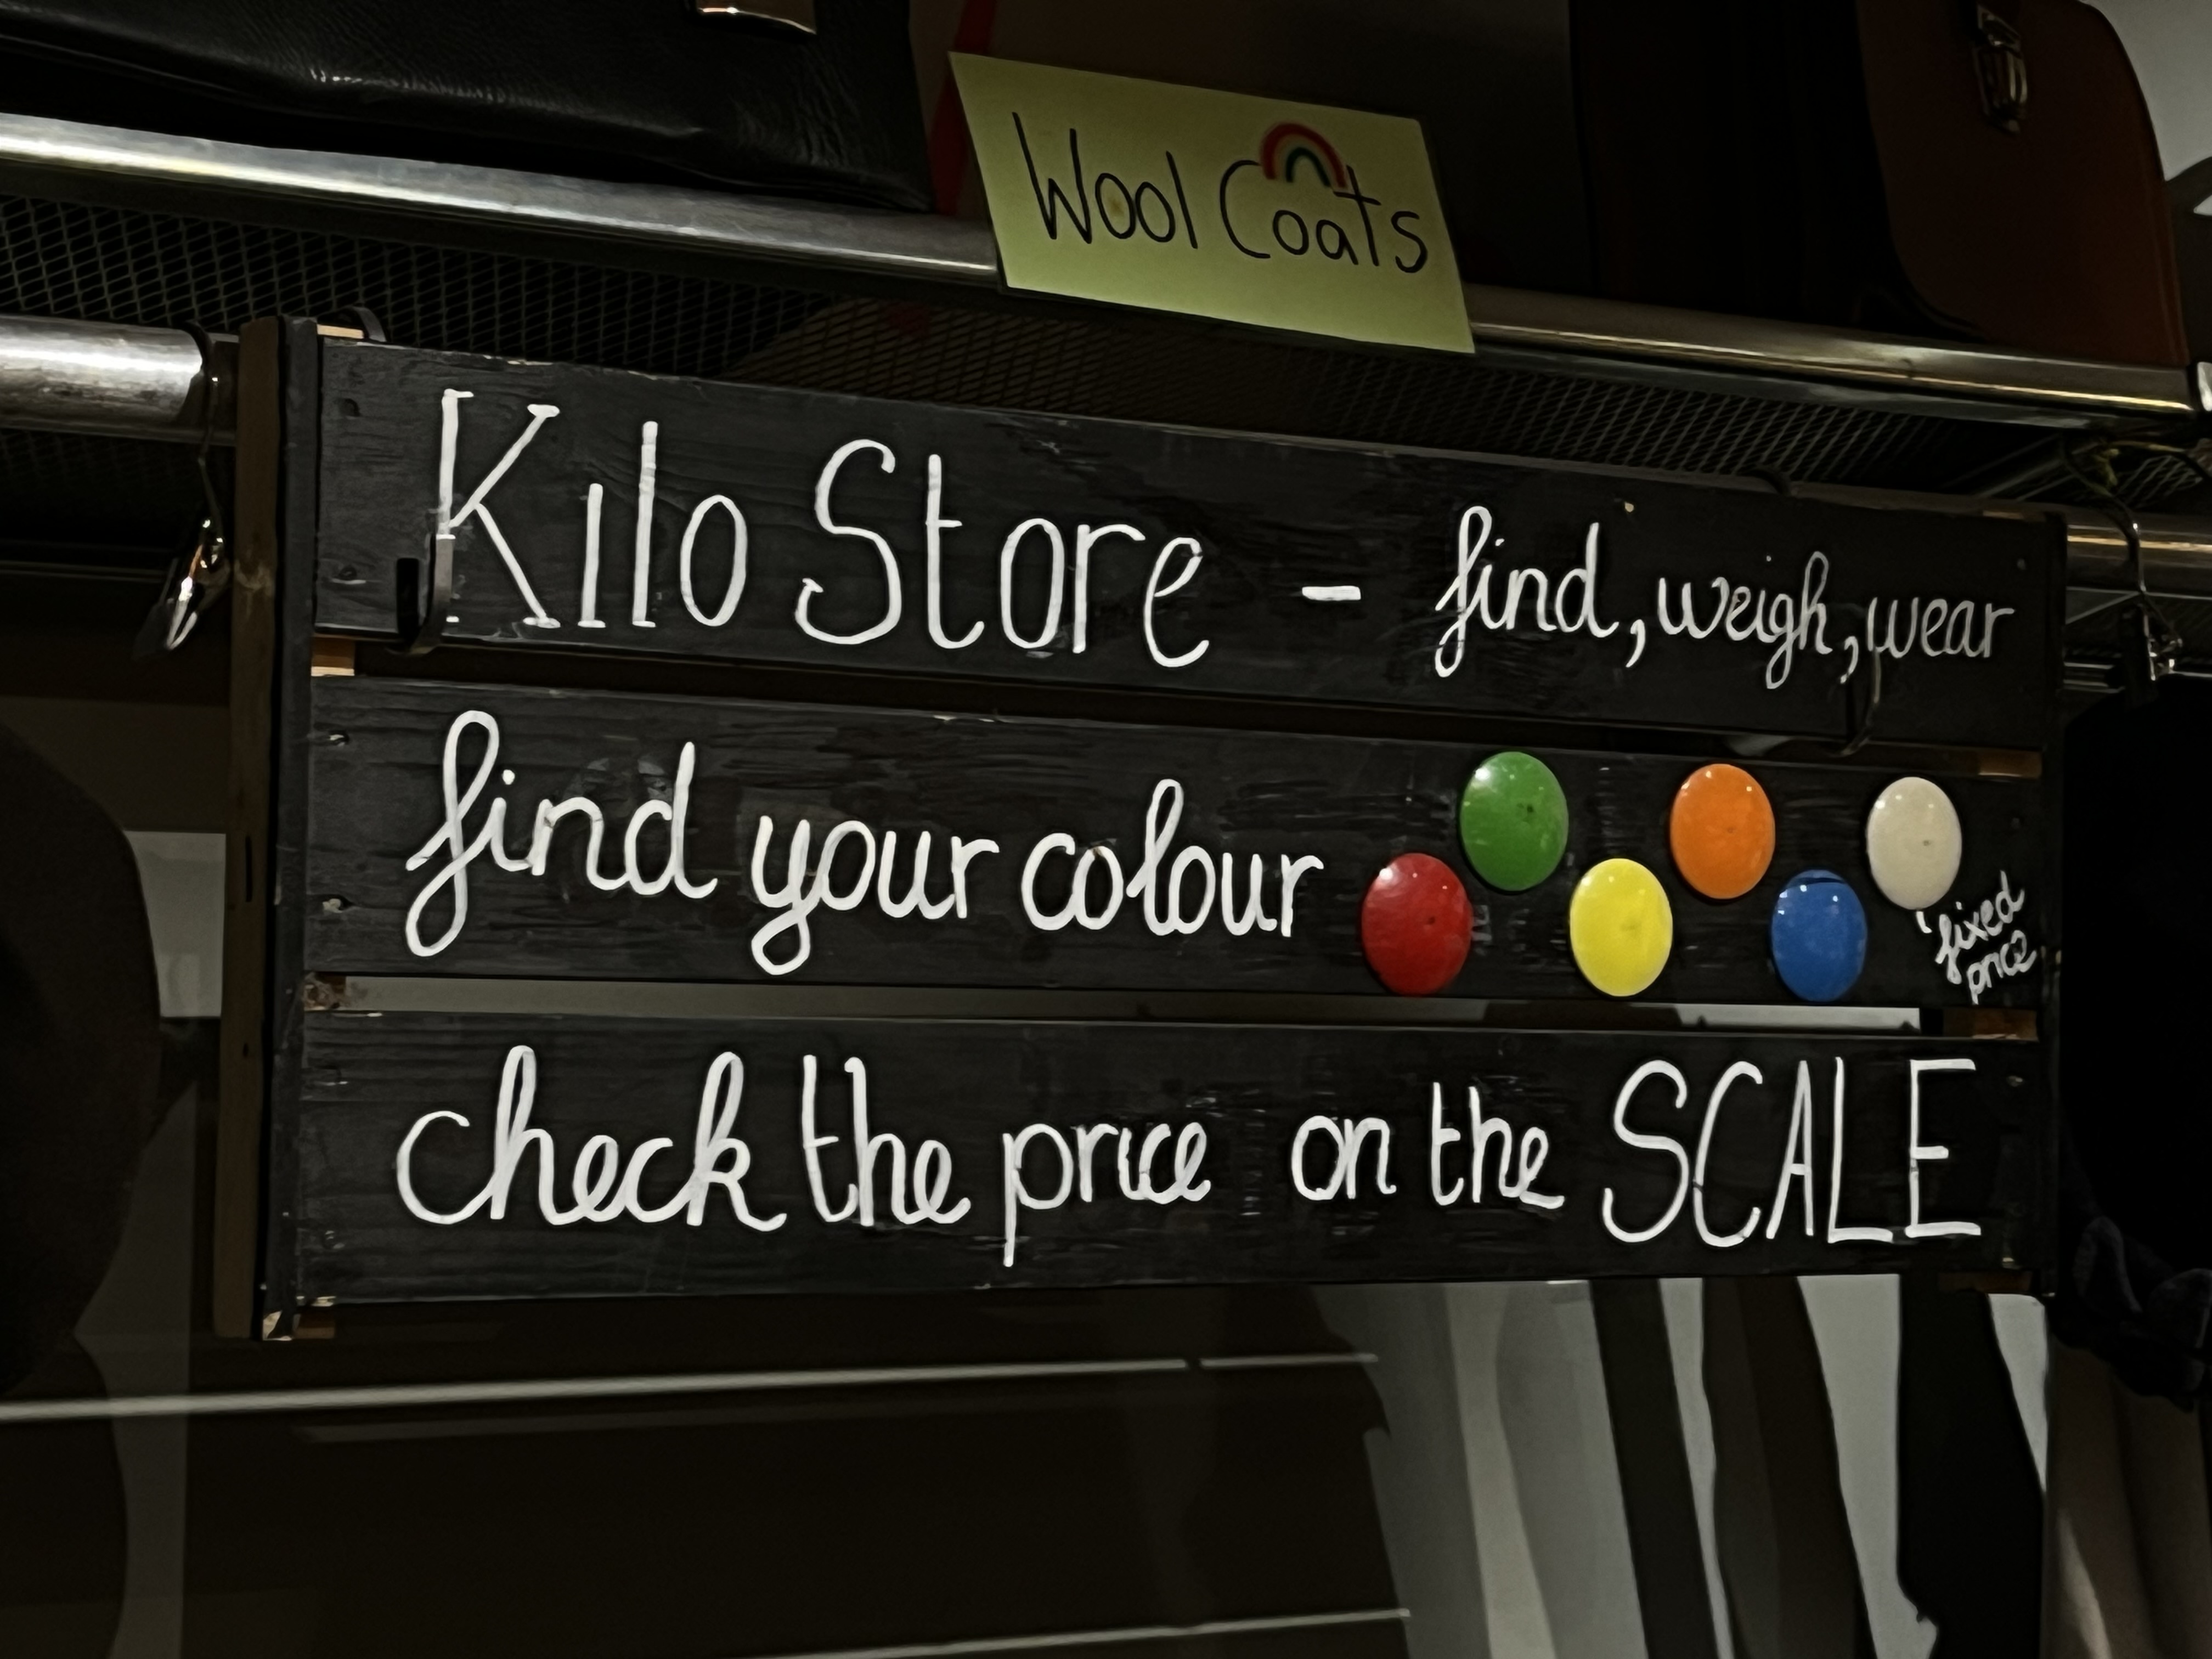 Wool Coats
Kilo Store - find, weigh, wear
find your colour
'fixed
price
check the price on the SCALE